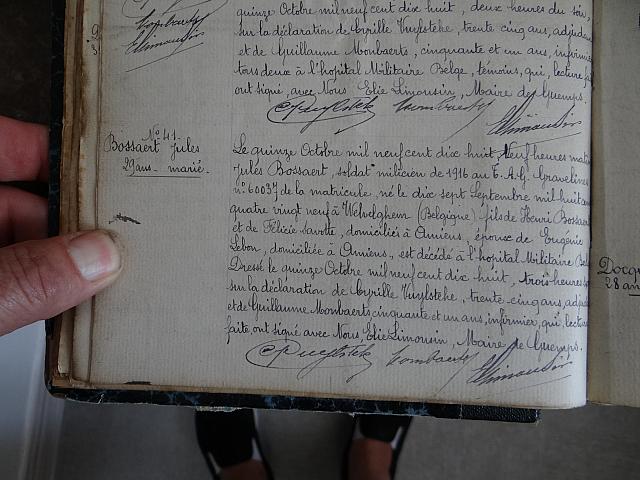 quinze Octobre mil neuf cent dix huit, deux heures du soir,
sur la déclaration de Cyrille Vuylsteke, trente cinq ans, adjudan
et de Guillaume Mombaerts, cinquante et un ans, infirmier
tous deux à l'hopital Militaire Belge, témoins, qui, lecture fai
ont signé, avec Nous Elie Limousin, Maire de Guemps.
CVuylstek Mombaerts ELimousin
N° 41
Bossaert Jules
29 ans - marié.
Le quinze Octobre mil neuf cent dix huit, Neuf heures matin
Jules Bossaert, soldat milicien de 1916 au C.A.G. Gravelines
n° 60037 de la matricule, né le dix sept Septembre mil huit cent
quatre vingt neuf à Wevelghem (Belgique) fils de Henri Bossaert
et de Félicie Savotte, domiciliés à Amiens, époux de Eugénie
Lebon, domiciliée à Amiens, est décédé à l'hopital Militaire Bel
Dressé le quinze Octobre mil neuf cent dix huit, trois heures s
sur la déclaration de Cyrille Vuylsteke, trente-cinq ans, adjud
et de Guillaume Mombaerts cinquante et un ans, infirmier, qui, lecture
faite ont signé avec Nous, Elie Limousin, Maire de Guemps.
CVuylstek Mombaerts ELimousin
Docq
28 an